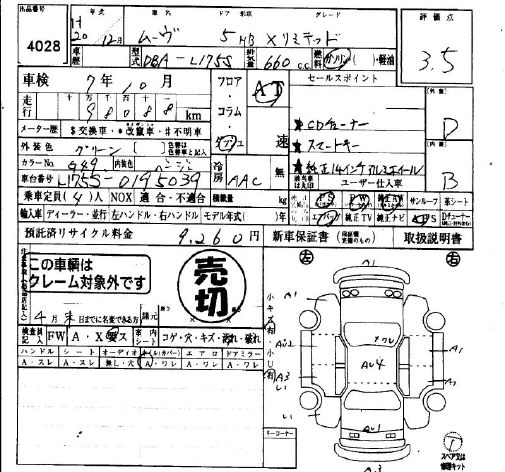 出品番号 年式 車名 ドア 形状 グレード 評価点
4028 H20 12月 ムーヴ 5 HB Xリミテッド 3.5
車歴 型式 DBA-L175S 排気量 660cc 燃料 ガソリン・軽油
車検 7年10月 フロア・コラム・ AT セールスポイント 外装 D
走行 十万 万 千 百 十
98088 km
メーター歴 $交換車・*改竄車・#不明車 速
★CDチューナー
外装色 グリーン [ ] 色替車は色替車と記入
★スマートキー
カラーNo. G49 内装色 ベージュ 冷房 AAC 無
★純正14インチアルミホイール
車台番号 L175S-0195039 ユーザー仕入車 B
乗車定員 (4)人 NOX 適合・不適合 積載量 kg PS PW サンルーフ 革シート
輸入車 ディーラー・並行 左ハンドル・右ハンドル モデル年式( )年 エアバッグ 純正TV 純正ナビ ABS
預託済リサイクル料金 9,260円 新車保証書 取扱説明書
この車輌は
クレーム対象外です
売切
左 右
4月末日までに名変できる方 諸元
検査員記入 FW A・X 要ス 室内 シート コゲ・穴・キズ・汚れ・破れ
ハンドル シート オーディオ エアロ ドアミラー
A・スレ A・スレ 無し・穴 A・ワレ A・ワレ A・ワレ
小キズ 小
A1 A1
ワレ
AU2 AU4 A1
A3
A2
U1 U1
A3
キーコーナー
T
スペア又は修理キット